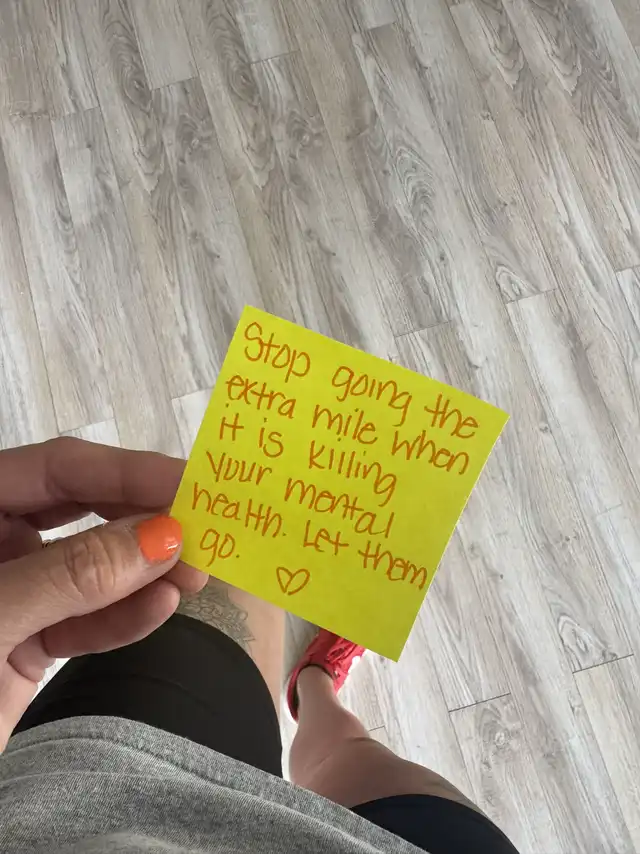 Stop going the
extra mile when
it is killing
your mental
health. Let them
go. ♡